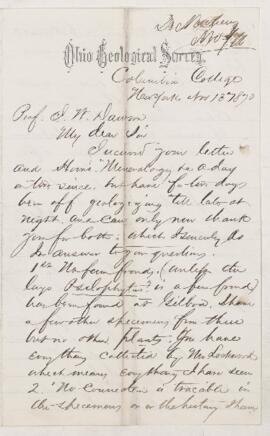 Dr Newberry
Nov 1870
Ohio Geological Survey.
Columbia College
New York Nov 13th 1870
Prof. J. W. Dawson
My dear Sir
I received your letter
and Horn's Mineralogy a day
or two since. but have for two days
been off geologizing till late at
night and can only now thank
you for both; which I sincerely do
In answer to your questions.
1st No fern fronds; (unless the
large Psilophyton? is a fern frond)
has been found at Gilboa. I have
a few other specimens from there
but no other plants. You have
everything collected by Mr Lockwood
which means everything I have seen
2. No connection is traceable in
the specimens or in the history I have